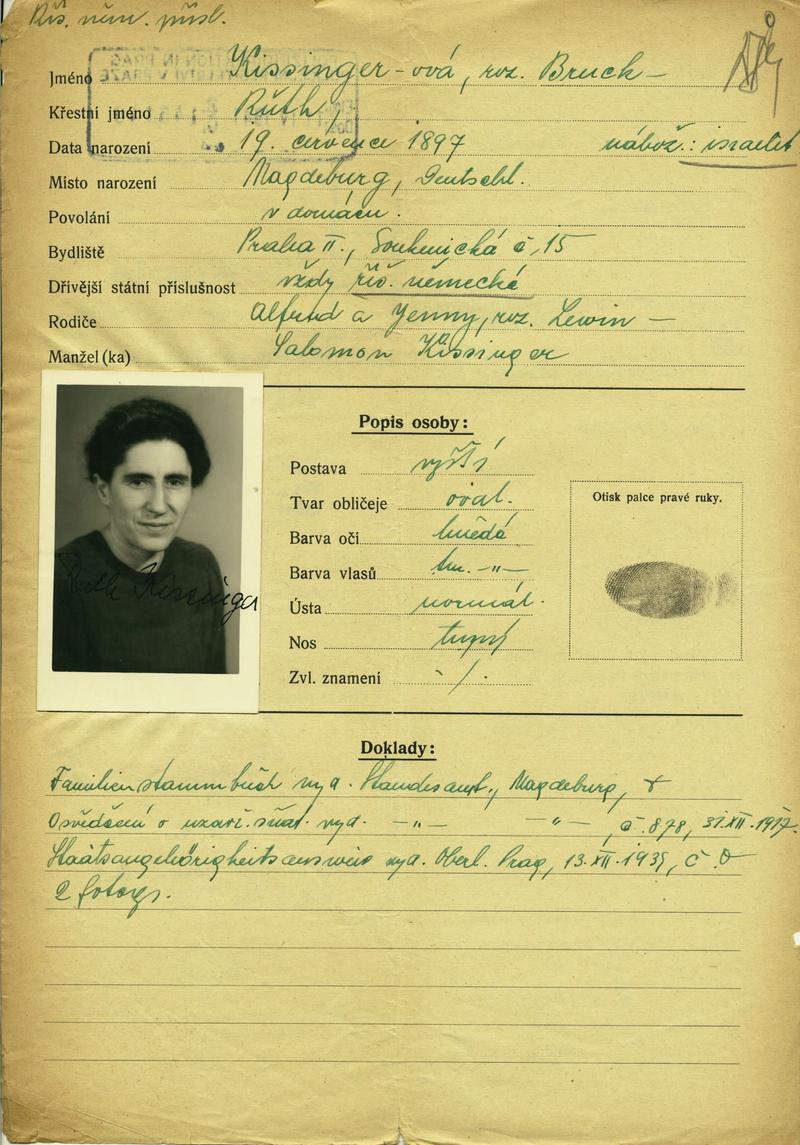 Říš. něm. přísl.
Jméno Kissinger-ová, roz. Bruck –
Křestní jméno Ruth,
Data narození 19. července 1897 nábož.: israelit
Místo narození Magdeburg, Deutschl.
Povolání v domácn.
Bydliště Praha II., Soukenická č. 15
Dřívější státní příslušnost vždy říš. německá
Rodiče Alfred a Jenny, roz. Lewin –
Manžel (ka) Salomon Kissinger
Popis osoby:
Postava vyšší
Tvar obličeje oval.
Otisk palce pravé ruky.
Barva očí hnědá
Barva vlasů tm. -„-
Ústa normál.
Nos tupý
Zvl. znamení /.
Ruth Kissinger
Doklady:
Familienstammbuch vyd. Standesamt, Magdeburg,
Osvědčení o uzavř. sňat. vyd. -„- -„-, č. 878, 31.XII.1917.
Staatsangehörigkeitsausweis vyd. Oberl. Prag, 13.XII.1939, č.
2 fotogr.